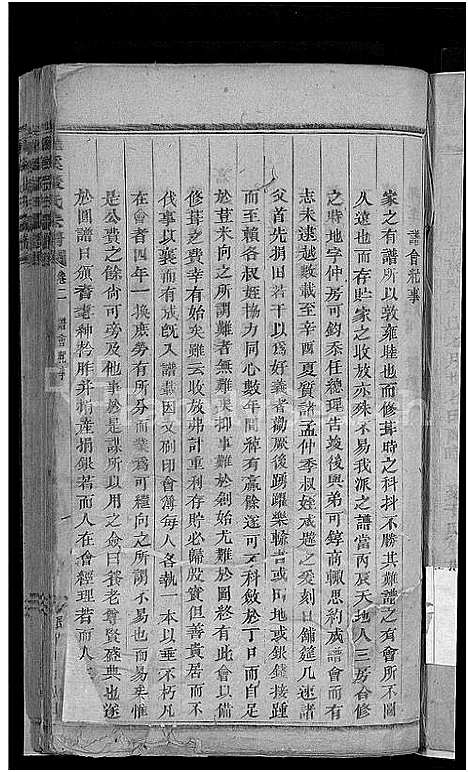 譜會䊵事
家之有譜所以敦雍睦也而修葺時之科抖不勝其難譜之有會所不圖
久遠也而存貯家之收放亦殊不易我派之譜當丙辰天地人三房合修
之時地字仲房可鈞忝任總理告竣後與弟可錞商輒思約成譜會而有
志未逮越數載至辛酉夏質諸孟仲季叔姪咸題之爰刻日鋪筵几速諸
父首先捐旧若干以爲好義者勸厥後踴躍樂輸者或田地或銀錢接踵
而至賴各叔姪協力同心數年間綽有贏餘遂可文科斂於丁口而自足
於荁米向之所謂難者無難矣抑事難於創始尤難於圖終有此會以備
修葺之費幸有始矣雖云收放弗計重利存貯必歸殷實但善貴居而不
伐事以襄而有成旣入譜載因又刷印會簿每人各執一本以垂不朽凡
在會者四年一換庶勞有所分而業爲可繼向之所謂不易也而易矣惟
是公費之餘尚可旁及他事於是謀所以用之僉曰養老尊賢盛典也遂
於圓譜日頒耆耋神胙并捐產捐銀若而人在會經理若而人
氏宗譜
卷二
譜會䊵事